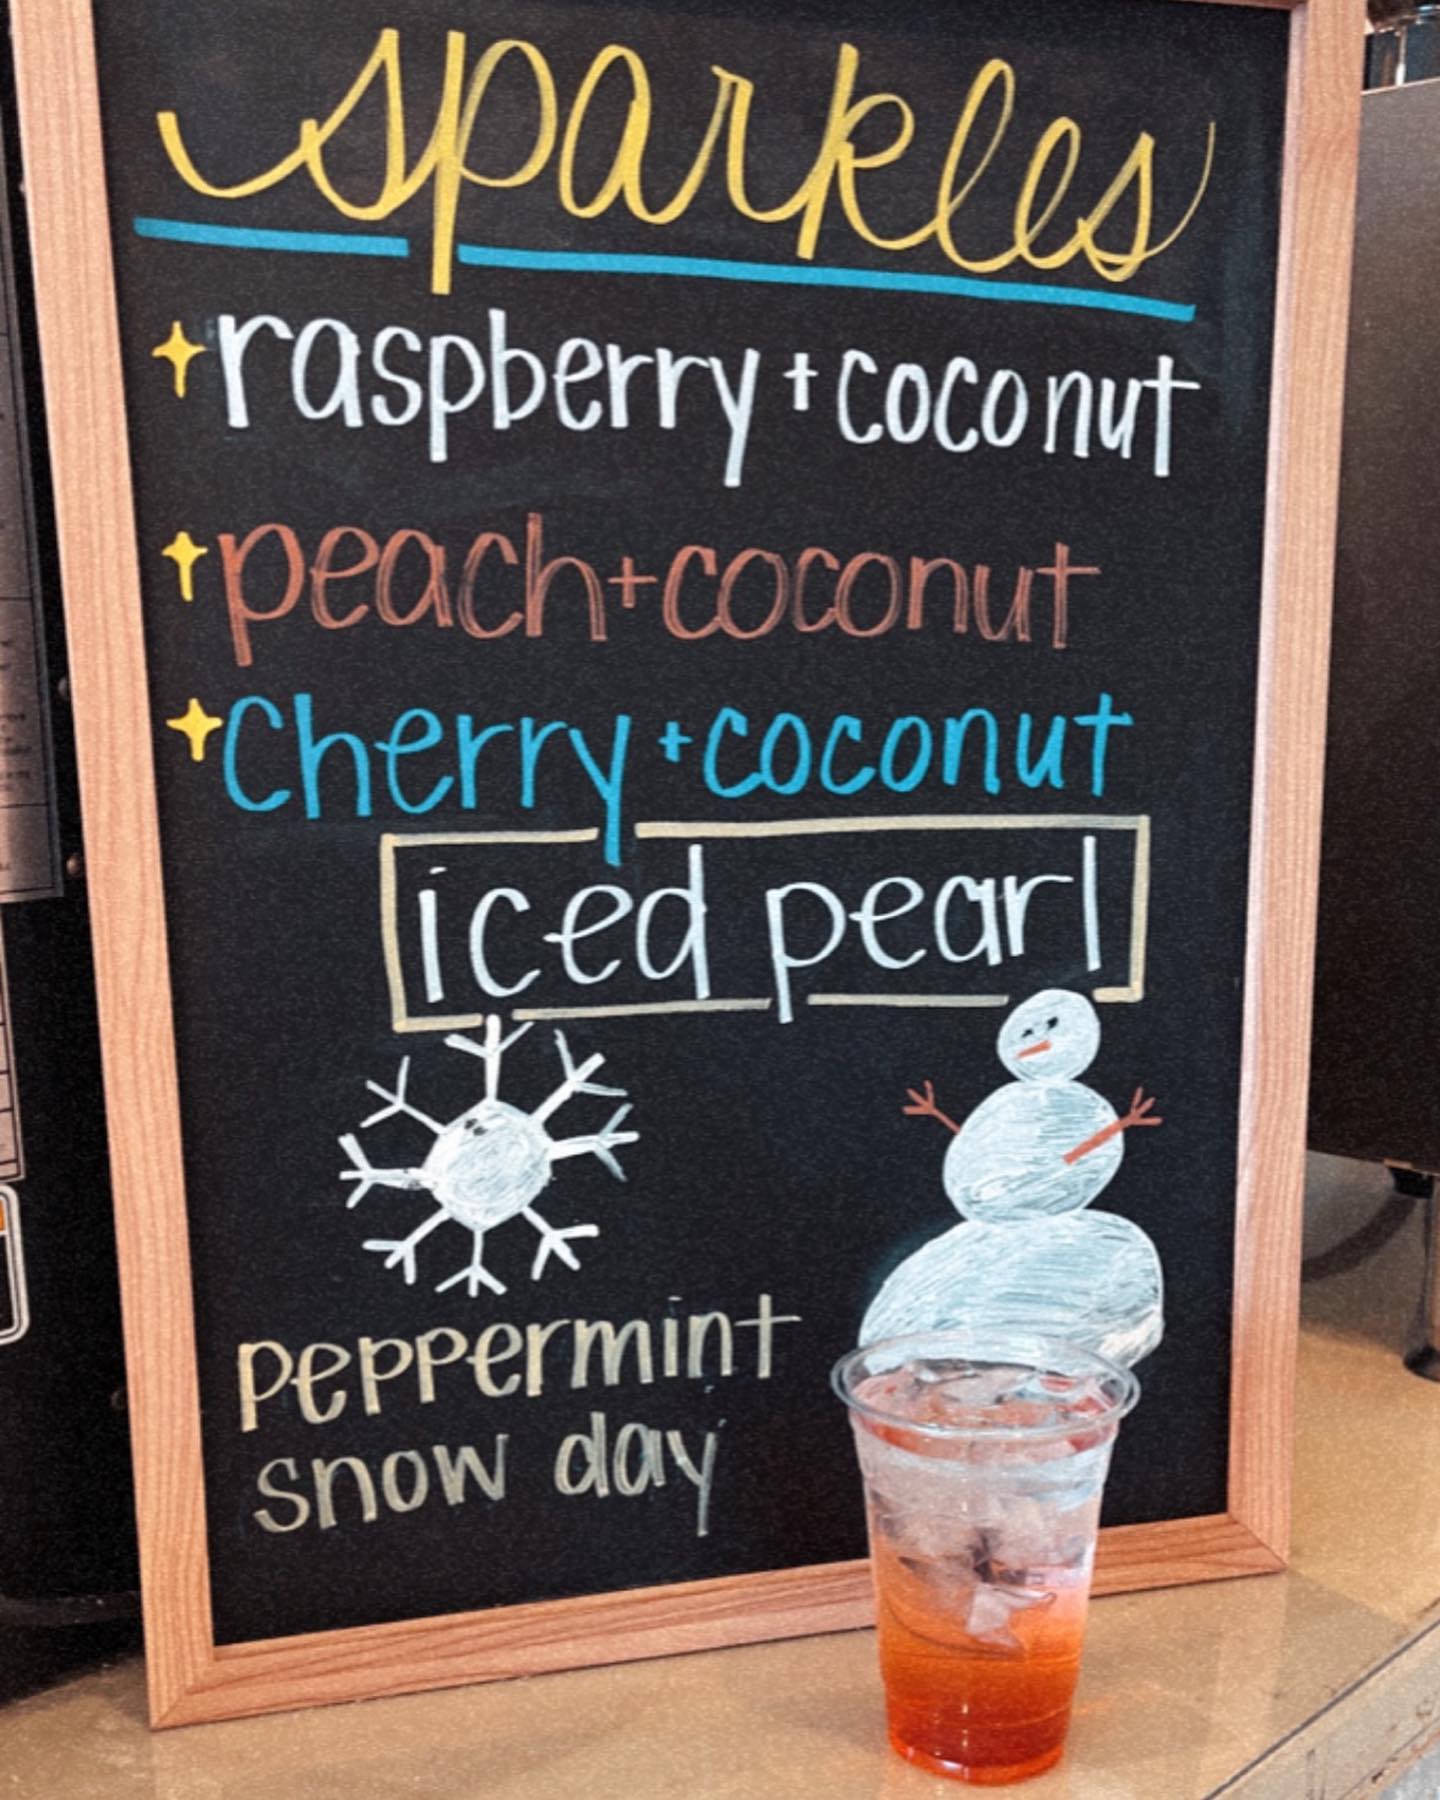 sparkles
raspberry + coconut
peach + coconut
cherry + coconut
iced pearl
peppermint
snow day